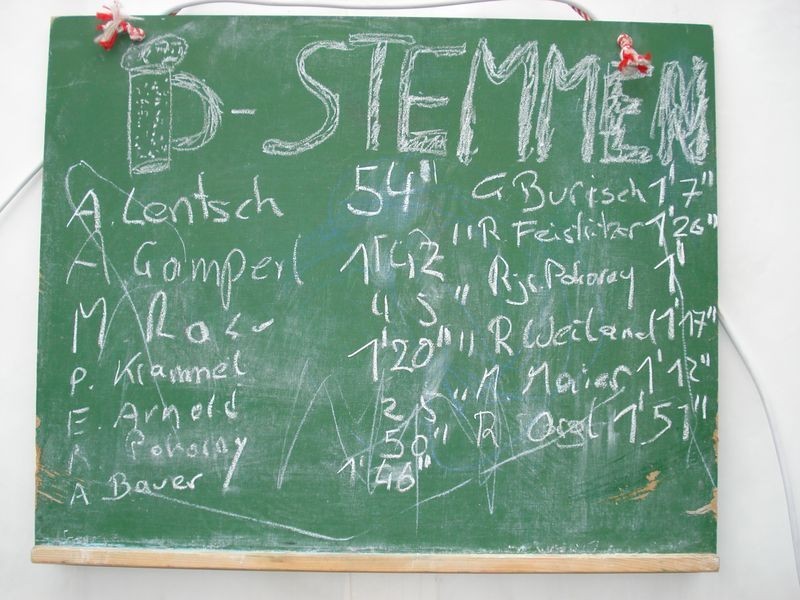 - STEMMEN
A. Lentsch 54"
A Gamperl 1'42"
M Rose 45"
P. Krammel 1'20"
E. Arnold 25"
R Pokorny 50"
A Bauer 1'46"
G Buritsch 1'7"
R 1'26"
R jr. Pokorny 1'
R Weiland 1'17"
M Maier 1'12"
R 1'51"